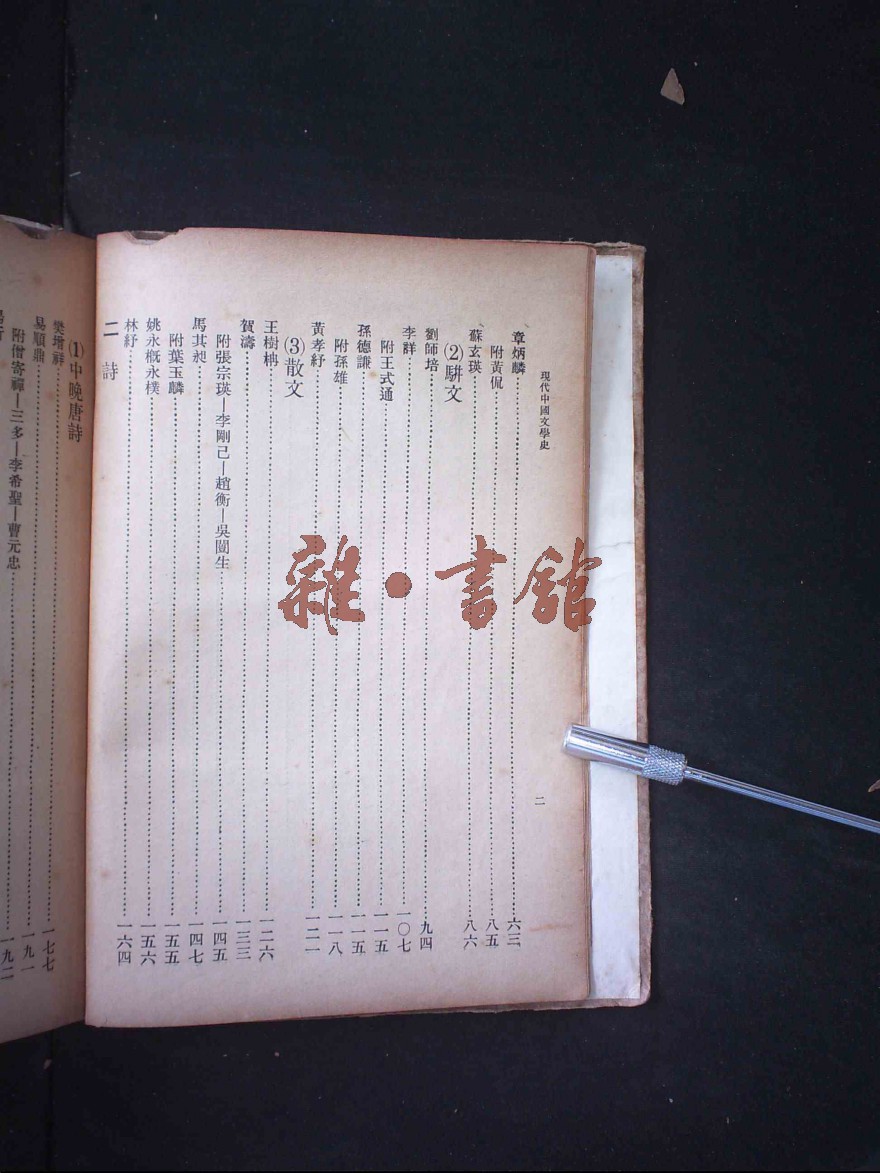 現代中國文學史
二
章炳麟 六三
附黃侃 八五
蘇玄瑛 八六
⑵駢文
劉師培 九四
李詳 一〇七
附王式通 一一五
孫德謙 一一五
附孫雄 一一八
黃孝紓 一二一
⑶散文
王樹枏 一二六
賀濤 一三三
附張宗瑛—李剛己—趙衡—吳闓生 一四五
馬其昶 一四七
附葉玉麟 一五五
姚永概永樸 一五六
林紓 一六四
二 詩
⑴中晚唐詩
樊增祥 一七七
易順鼎 一九一
附僧寄禪—三多—李希聖—曹元忠 一九二
雜·書館